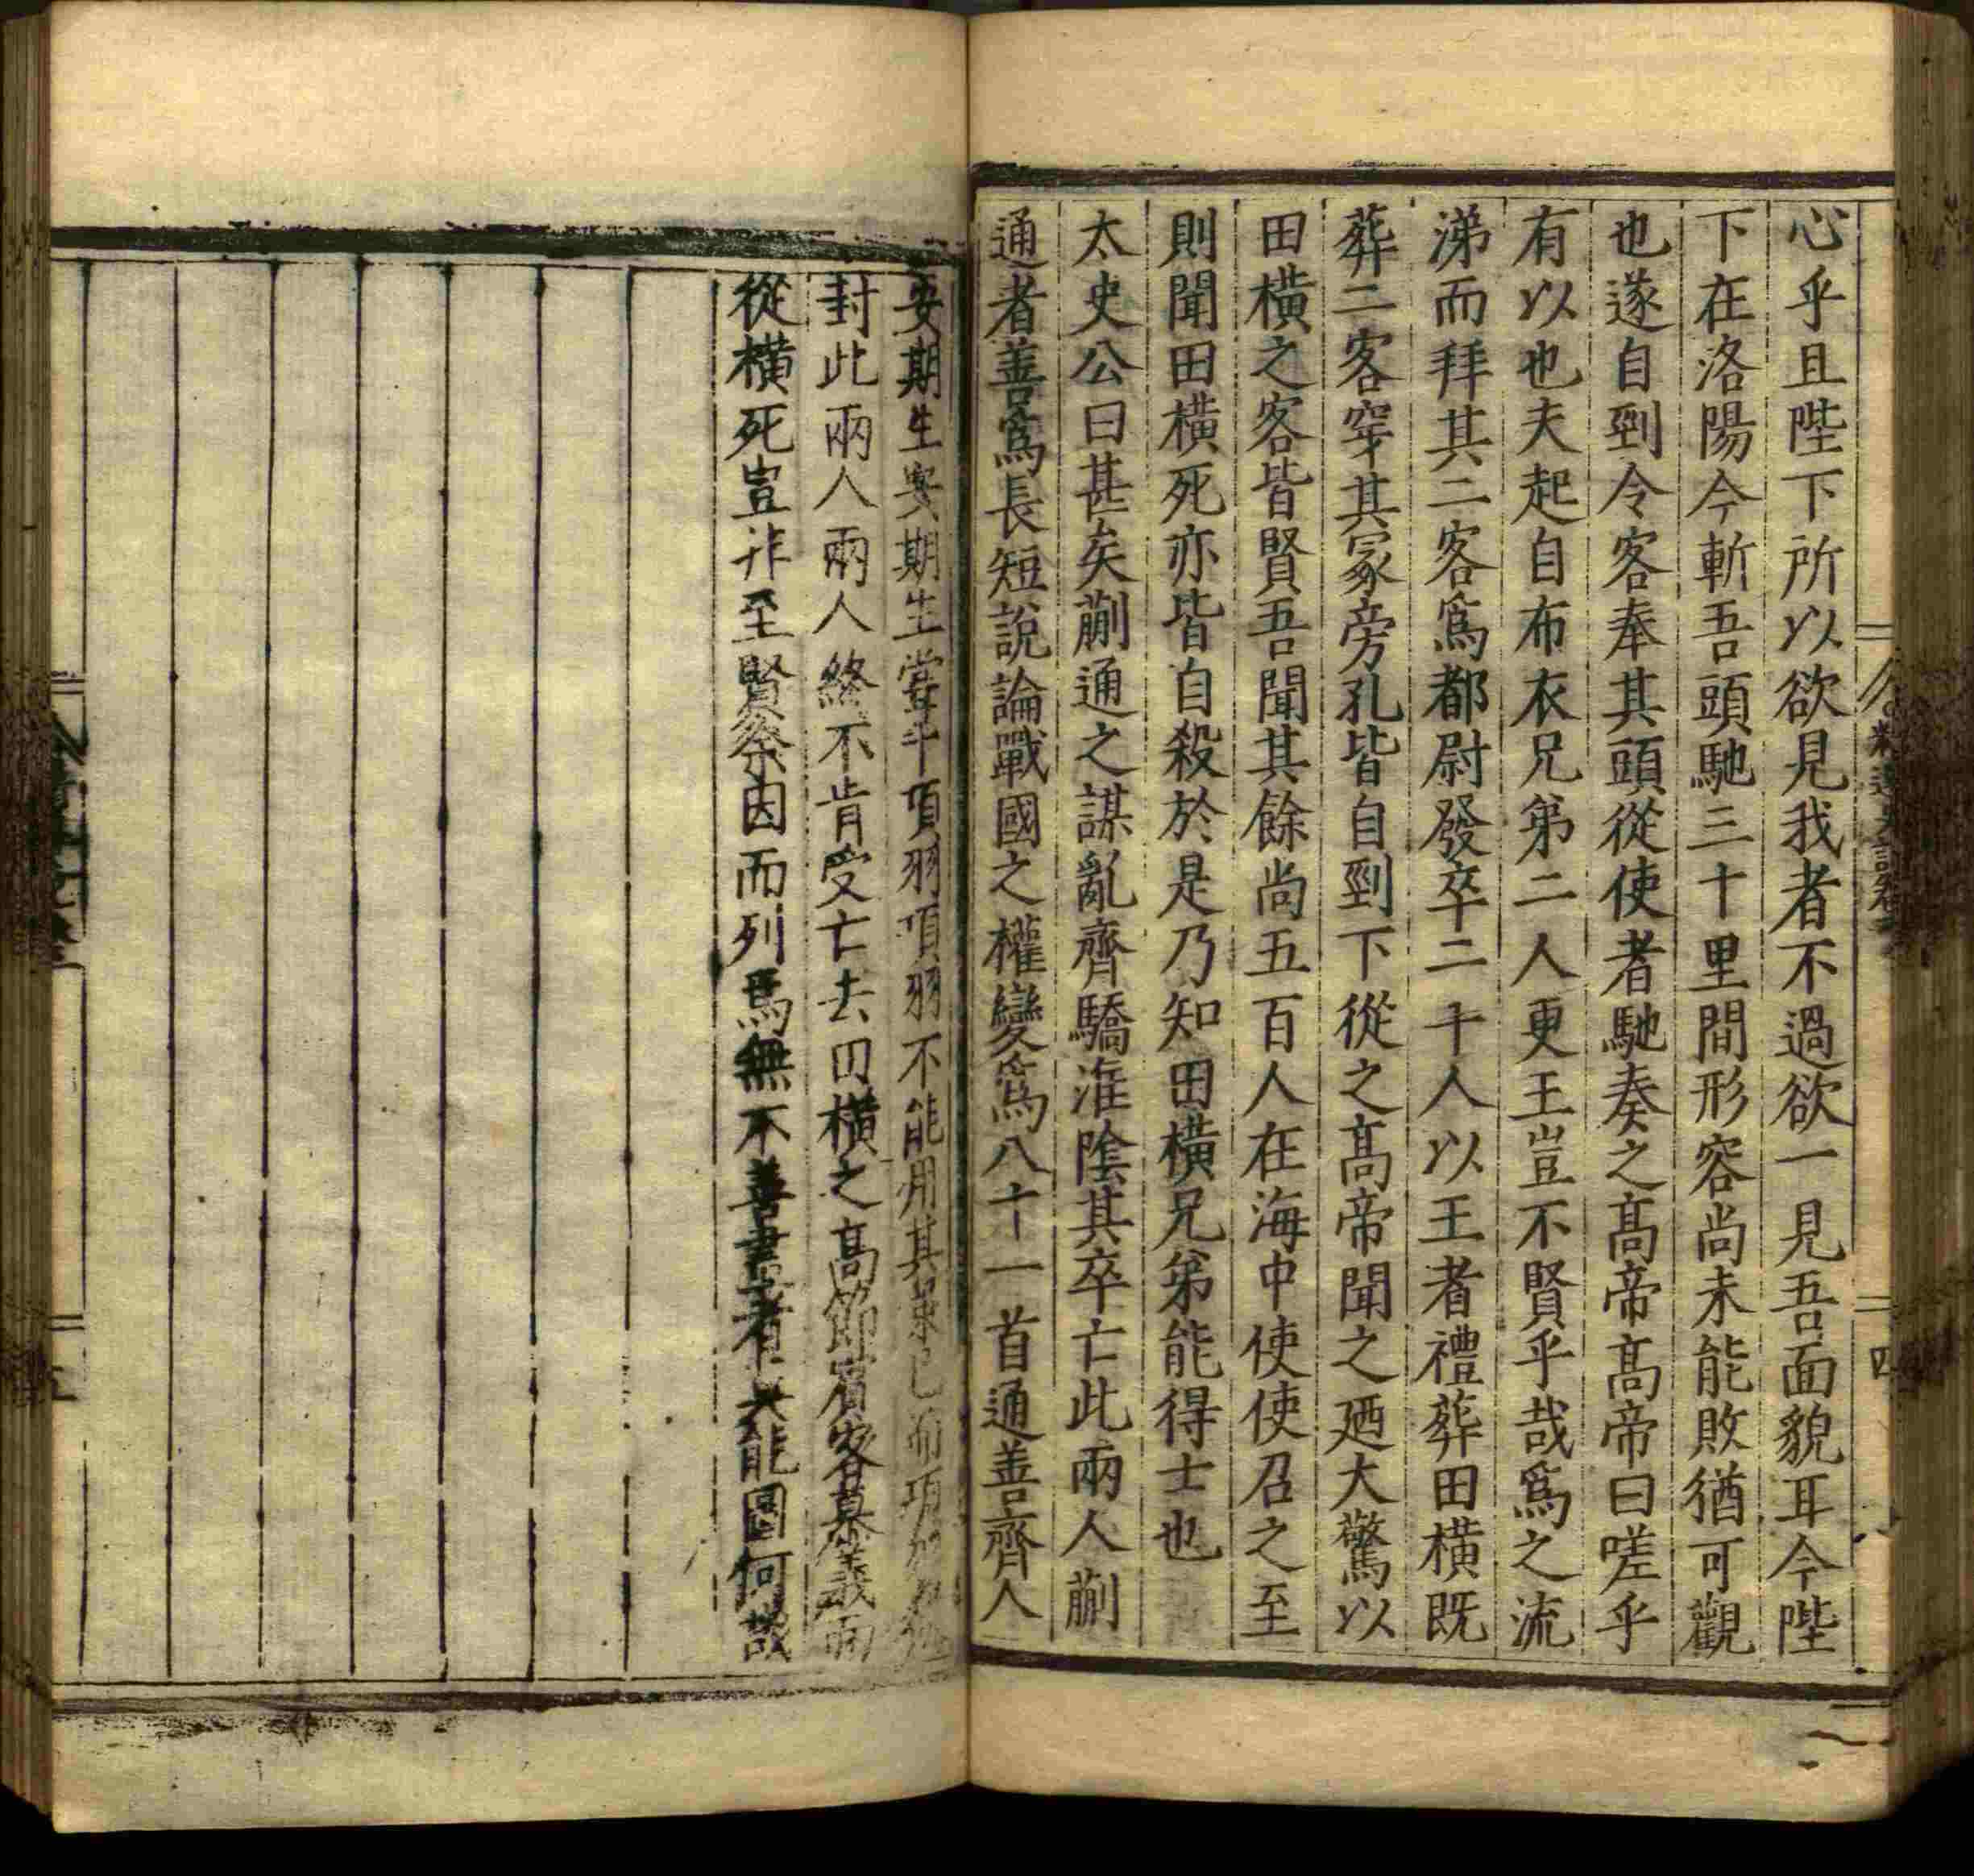 心乎且陛下所以欲見我者不過欲一見吾面貌耳今陛
下在洛陽今斬吾頭馳三十里間形容尚未能敗猶可觀
也遂自剄令客奉其頭從使者馳奏之高帝高帝曰嗟乎
有以也夫起自布衣兄第二人更王豈不賢乎哉爲之流
涕而拜其二客爲都尉發卒二千人以王者禮葬田橫既
葬二客穿其冢旁孔皆自剄下從之高帝聞之廼大驚以
田橫之客皆賢吾聞其餘尚五百人在海中使使召之至
則聞田橫死亦皆自殺於是乃知田橫兄弟能得士也
太史公曰甚矣蒯通之謀亂齊驕淮陰其卒亡此兩人蒯
通者善爲長短說論戰國之權變爲八十一首通善齊人
安期生安期生嘗干項羽項羽不能用其策已而項羽欲
封此兩人兩人終不肯受亡去田橫之高節賓客慕義而
從橫死豈非至賢余因而列焉無不善畫者莫能圖何哉
精選史記卷
四